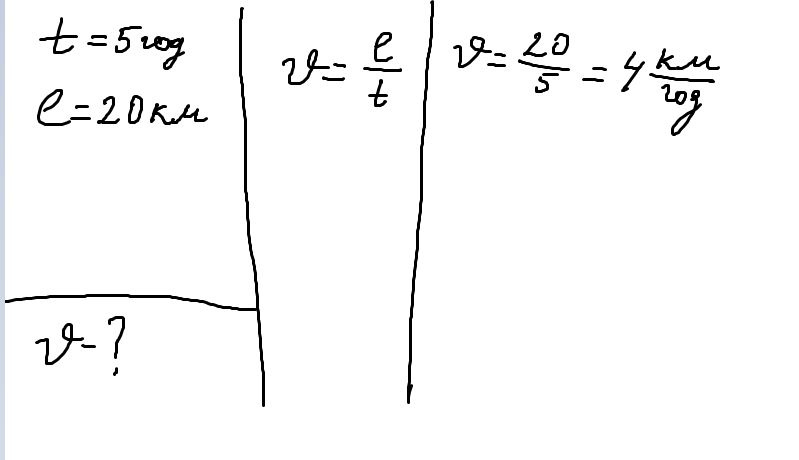 t = 5 год
l = 20 км
v - ?
v = l/t
v = 20/5 = 4 км/год